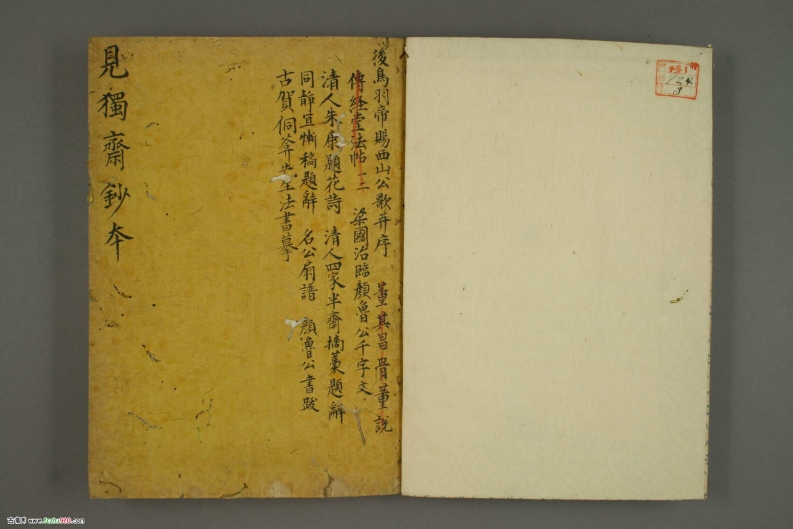 後鳥羽帝賜西山公歌并序 董其昌骨董説
傳経堂法帖 一 二 梁國治臨顏魯公千字文
清人朱康題花詩 清人四家半齋摘藁題辭
同静宜慚稿題辭 名公扇譜 顏魯公書跋
古賀侗菴先生法書摹
見獨齋鈔本